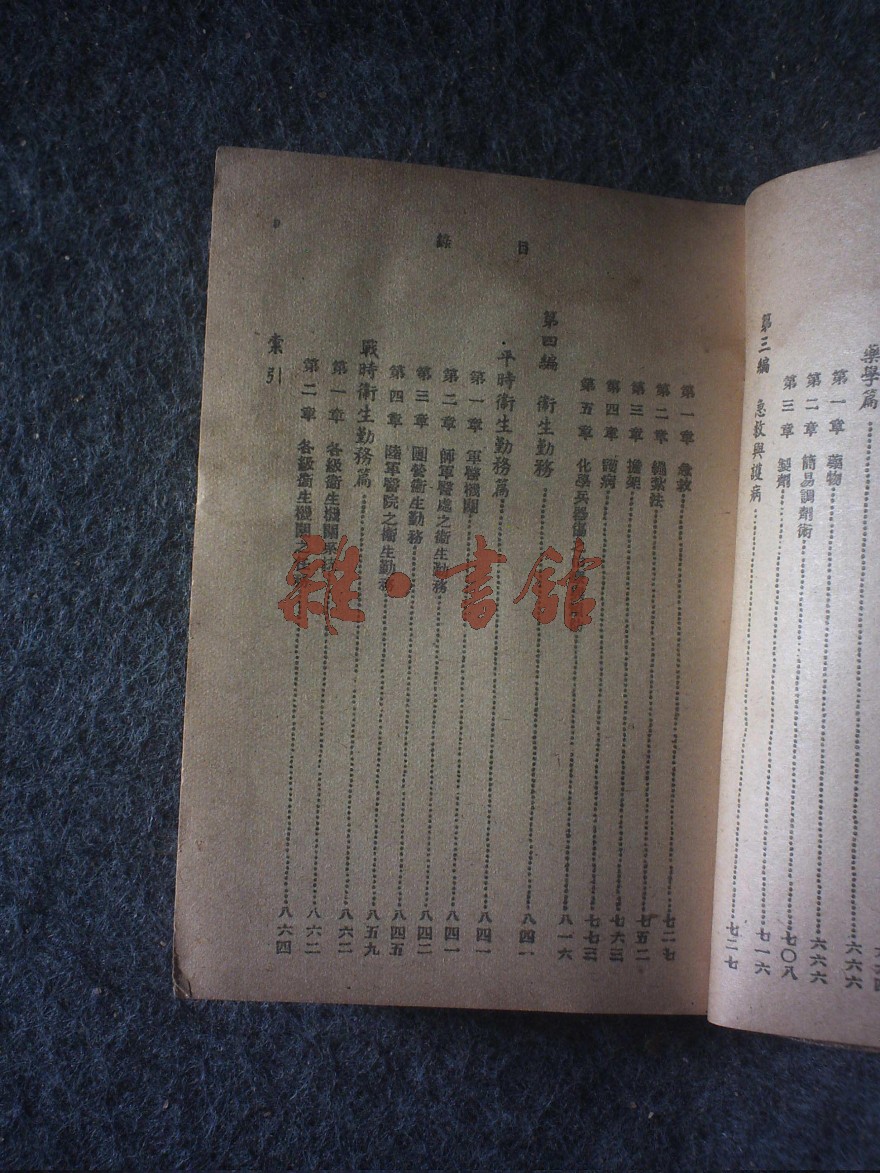 藥學篇……六六六
第一章 藥物……六六六
第二章 簡易調劑術……七〇八
第三章 製劑……七一六
第三編 急救與護病……七二七
目錄
第一章 急救……七二七
第二章 繃紮法……七五二
第三章 擔架……七六三
第四章 護病……七七三
第五章 化學兵器傷……八一六
第四編 衛生勤務……八四一
平時衛生勤務篇……八四一
第一章 軍醫機關……八四一
第二章 師軍醫處之衛生勤務……八四二
第三章 團營衛生勤務……八四五
第四章 陸軍醫院之衛生勤務……八五九
戰時衛生勤務篇……八六二
第一章 各級衛生機關……八六二
第二章 各級衛生機關之……八六四
索引
雜·書館